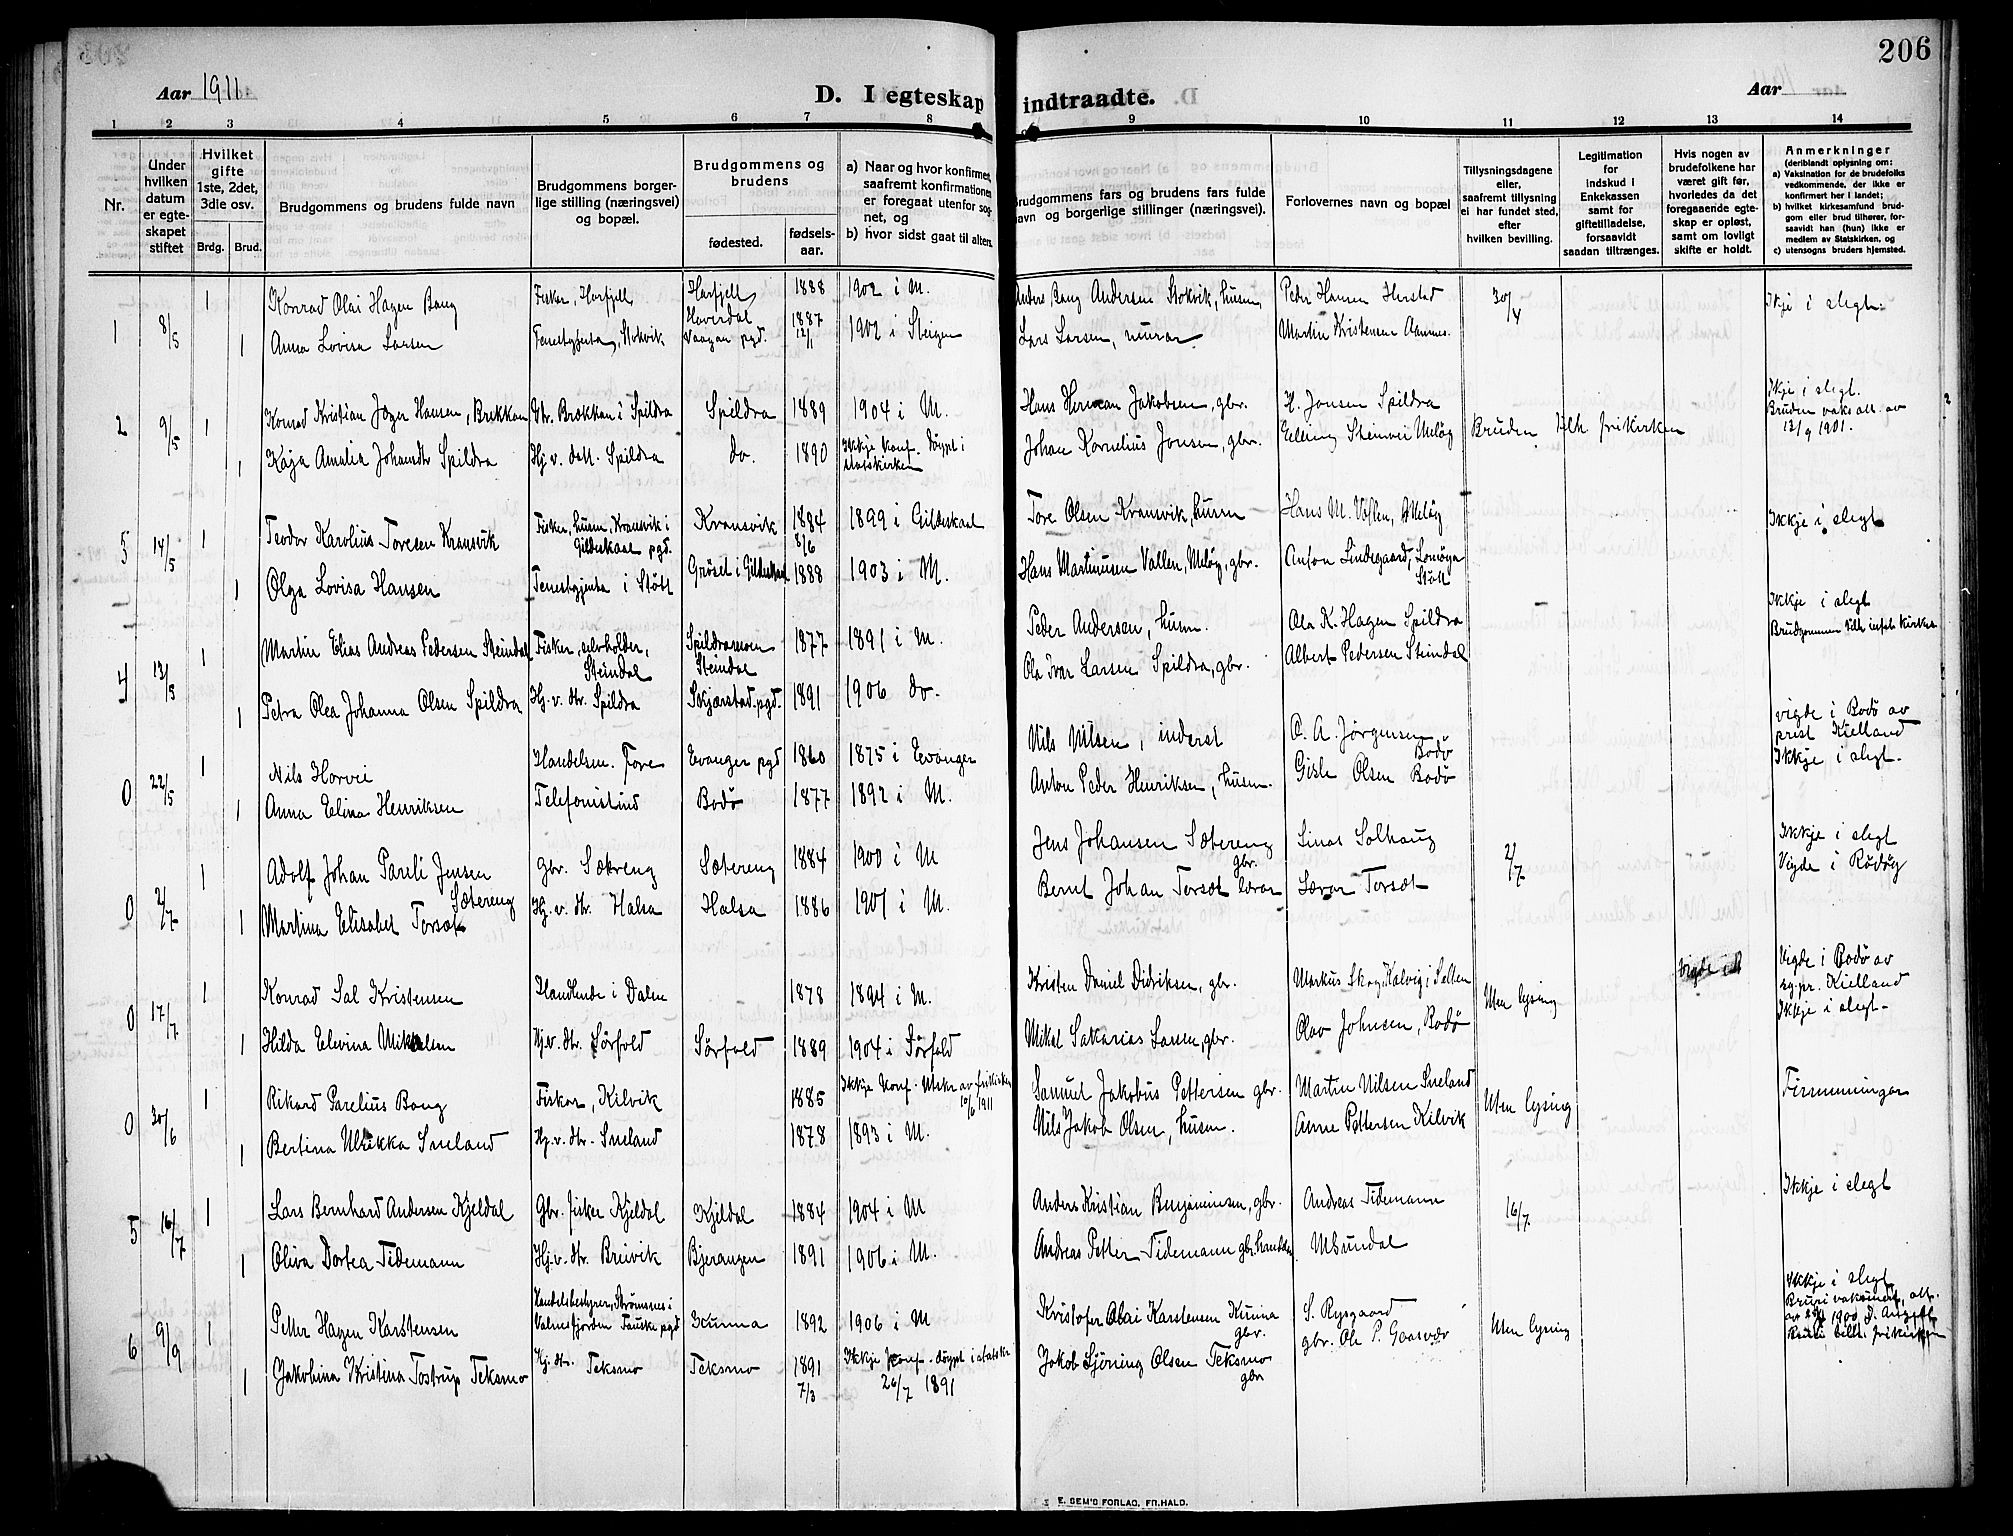 206
Aar 1911
D. I egteskap indtraadte.
Aar
1 2 3 4 5 6 7 8 9 10 11 12 13 14
Nr.
Under hvilken datum er egteskapet stiftet
Hvilket gifte 1ste, 2det, 3die osv.
Brdg. Brud.
Brudgommens og brudens fulde navn
Brudgommens borgerlige stilling (næringsvei) og bopæl.
Brudgommens og brudens
fødested.
fødselsaar.
a) Naar og hvor konfirmert, saafremt konfirmationen er foregaat utenfor sognet, og
b) hvor sidst gaat til alters.
Brudgommens fars og brudens fars fulde navn og borgerlige stillinger (næringsvei).
Forlovernes navn og bopæl
Tillysningsdagene eller, saafremt tillysning ei har fundet sted, efter hvilken bevilling.
Legitimation for indskud i Enkekassen samt for giftetilladelse, forsaavidt saadan tiltrænges.
Hvis nogen av brudefolkene har været gift før, hvorledes da det foregaaende egteskap er opløst, samt om lovligt skifte er holdt.
Anmerkninger
(deriblandt oplysning om:
a) Vaksination for de brudefolks vedkommende, der ikke er konfirmert her i landet;
b) hvilket kirkesamfund brudgom eller brud tilhører, forsaavidt han (hun) ikke er medlem av Statskirken, og
c) utensogns bruders hjemsted.
1 8/5 1 Konrad Olai Hagen Bang Fisker, Horfjell Horfjell 1888 1902 i M. Anders Bang Andersen Stokvik, husm. Peder Hansen Herstad 30/4 Ikje i slegt.
1 Anna Lovisa Larsen Tenestgjenta, Stokvik Haverdal Vaagan pgd. 1887 12/1 1902 i Steigen Lars Larsen, murar Martin Kristensen Aamnes.
2 9/5 1 Konrad Kristian Jæger Hansen, Brekkan Gbr. Brækkan i Spildra Spildra 1889 1904 i M. Hans Herman Jakobsen, gbr. H. Jonsen Spildra Ikje i slegt.
Bruden vaks att. av 12/9 1901.
1 Kaja Amalia Johansdtr Spildra Hj. v. datt. Spildra do. 1890 Ikkje konf. døypt i statskirken Johan Kornelius Jonsen, gbr. Elling Steinvei Meløy Bruden tilh. frikirken
5 14/5 1 Teodor Karolius Toresen Kransvik Fisker, husm, Kransvik i Gildeskaal pgd. Kransvik 1884 8/6 1899 i Gildeskaal Tore Olsen Kransvik, husm Hans M. Vallen, Meløy Ikkje i slegt
1 Olga Lovisa Hansen Tenestgjenta i Støtt Grøset i Gildeskaal 1888 1903 i M. Hans Martinusen Vallen, Meløy, gbr. Anton Lindegaard, Lomøya Støtt
4 13/5 1 Martin Elias Andreas Pedersen Steindal Fisker, selvholder, Steindal Spildramoen Steindal 1877 1891 i M. Peder Andersen, husm. Ola K. Hagen Spildra Ikkje i slegt
Brudgommen tilh inst. kirken
1 Petra Olea Johanna Olsen Spildra Hj. v. dtr. Spildra Skjærstad. pgd. 1891 1906 do. Ola Ivar Larsen Spildra, gbr. Albert Pedersen Steindal
0 22/5 1 Nils Horvei Handelsm. Tore Evanger pgd 1860 1875 i Evanger Nils Nilsen, inderst O. A. Jørgensen Bodø vigde i Bodø av prest Kielland
Ikkje i slegt.
1 Anna Elina Henriksen Telefonistind Bodø 1877 1892 i M. Anton Peder Henriksen, husm. Gisle Olsen Bodø
0 2/7 1 Adolf Johan Pauli Jensen Sætereng gbr. Sætreng Sætereng 1884 1900 i M Jens Johansen Sætereng gbr. Sinas Solhaug 2/7 Ikkje i slegt
Vigde i Rødøy
1 Martina Elisabet Torsæt Hj. v. dtr. Halsa Halsa 1886 1901 i M. Bernt Johan Torsæt lærar Lærar Torsæt
0 17/7 1 Konrad Sal Kristensen Handlende i Dalen 1878 1894 i M. Kristen Daniel Didriksen, gbr. Markus Skog, Kalvig i Salten Uten lysing Vigde i Vigde i Bodø av sg.pr. Kielland
Ikkje i slegt.
1 Hilda Elevina Mikalsen Hj.v. dtr. Sørfold Sørfold 1889 1904 i Sørfold Mikal Sakarias Larsen, gbr. Olav Johnsen, Bodø
0 30/6 1 Rikard Parelius Bang Fisker, Kilvik 1885 Ikkje konf. Utskr av frikirken 10/6 1911 Samuel Jakobus Pettersen gbr. Martin Nilsen Sneland Uten lysing Firemenningar
1 Bertina Ulrikka Sneland Hj. v. dtr. Sneland 1878 1893 i M. Nils Jakob Olsen, husm. Anne Pettersen Kilvik
5 16/7 1 Lars Bernhard Andersen Kjeldal Gbr. fisker Kjeldal Kjeldal 1884 1904 i M Anders Kristian Benjaminsen, gbr. Andreas Tidemann 16/7 Ikkje i slegt
1 Oliva Dortea Tidemann Hj. v. dtr. Breivik Bjerangen 1891 1906 i M. Andreas Petter Tidemann gbr. handelsm M Sundal
6 9/9 1 Petter Hagen Karstensen Handelsbestyrer, Strømsnes i Valnesfjorden Fauske pgd Kunna 1892 1906 i M Kristofer Olai Karstensen Kunna gbr. S. Rysgaard Uten lysing Ikkje i slegt
Bruri vaksinert, att.
Bruri tilh. frikirken
1 Jakobina Kristina Tostrup Teksmo Hj. dtr. Teksmo Teksmo 1891 7/3 Ikkje konf. døypt i statskr 26/7 1891 Jakob Sjöning Olsen Teksmo gbr gbr. Ole P. Gaasvær
E. SEM'S FORLAG, FR.HALD.